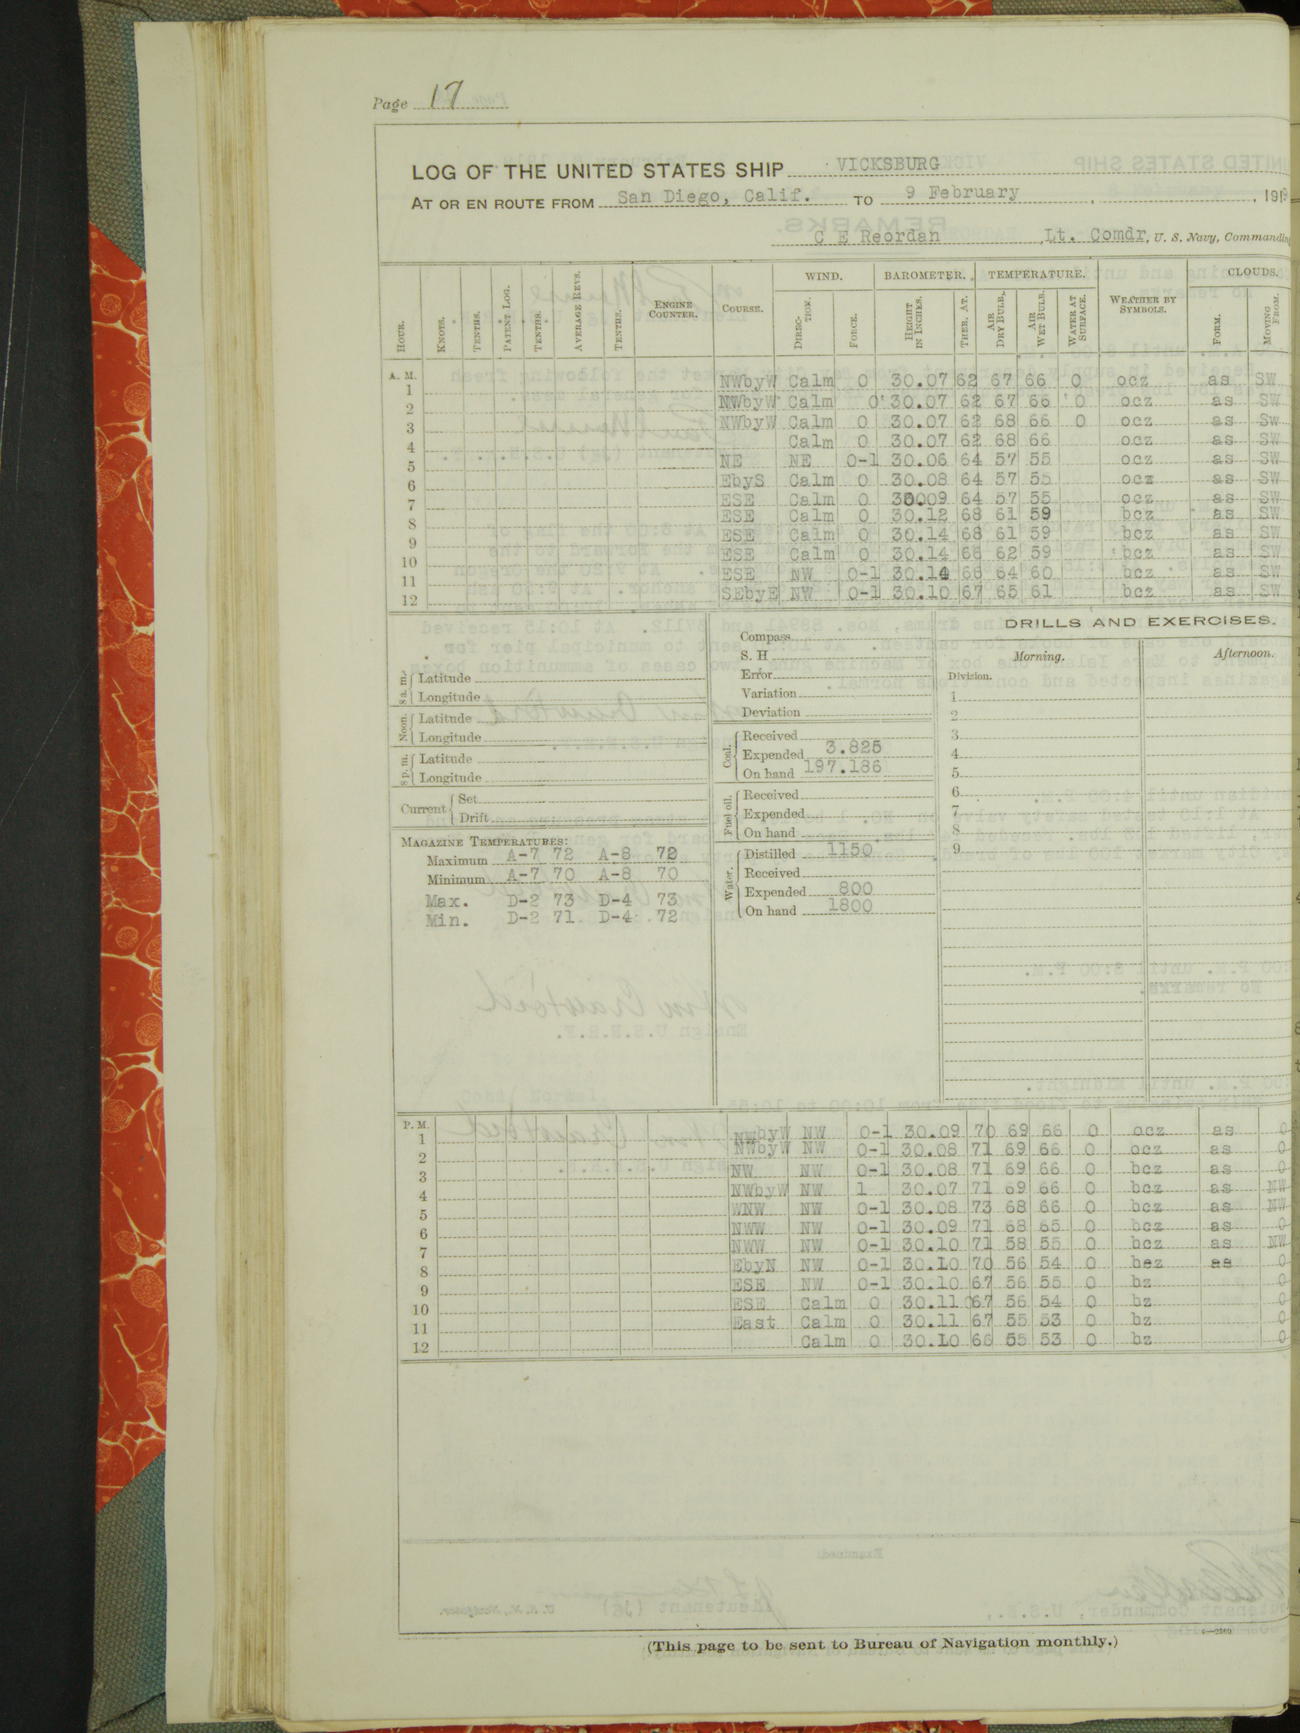 Page 17
LOG OF THE UNITED STATES SHIP VICKSBURG
AT OR EN ROUTE FROM San Diego, Calif. TO 9 February , , 191
C E Reordan Lt. Comdr, U. S. Navy, Commanding
HOUR. KNOTS. TENTHS. PATENT LOG. TENTHS. AVERAGE REVS. TENTHS. ENGINE COUNTER. COURSE. WIND. DIRECTION. FORCE. BAROMETER. HEIGHT IN INCHES. THER. AT. TEMPERATURE. AIR DRY BULB. AIR WET BULB. WATER AT SURFACE. WEATHER BY SYMBOLS. CLOUDS. FORM. MOVING FROM.
A. M.
1 NWbyW Calm 0 30.07 62 67 66 0 ocz as SW
2 NWbyW Calm 0 30.07 62 67 66 0 ocz as SW
3 NWbyW Calm 0 30.07 62 68 66 0 ocz as Sw
4 Calm 0 30.07 62 68 66 ocz as SW
5 NE NE 0-1 30.06 64 57 55 ocz as SW
6 EbyS Calm 0 30.08 64 57 55 ocz as SW
7 ESE Calm 0 30009 64 57 55 ocz as SW
8 ESE Calm 0 30.12 68 61 59 bcz as SW
9 ESE Calm 0 30.14 68 61 59 bcz as SW
10 ESE Calm 0 30.14 66 62 59 bcz as SW
11 ESE NW 0-1 30.14 66 64 60 bcz as SW
12 SEbyE NW 0-1 30.10 67 65 61 bcz as SW
8 a. m. Latitude
Longitude
Noon. Latitude
Longitude
8 p. m. Latitude
Longitude
Current Set
Drift
MAGAZINE TEMPERATURES:
Maximum A-7 72 A-8 72
Minimum A-7 70 A-8 70
Max. D-2 73 D-4 73
Min. D-2 71 D-4 72
Compass
S. H
Error
Variation
Deviation
Coal. Received
Expended 3.825
On hand 197.186
Fuel oil. Received
Expended
On hand
Water. Distilled 1150
Received
Expended 800
On hand 1800
DRILLS AND EXERCISES.
Morning. Afternoon.
Division.
1
2
3
4
5
6
7
8
9
P. M.
1 NWbyW NW 0-1 30.09 70 69 66 0 ocz as 0
2 NWbyW NW 0-1 30.08 71 69 66 0 ocz as 0
3 NW NW 0-1 30.08 71 69 66 0 bcz as 0
4 NWbyW NW 1 30.07 71 69 66 0 bcz as NW
5 WNW NW 0-1 30.08 73 68 66 0 bcz as NW
6 NWW NW 0-1 30.09 71 68 65 0 bcz as 0
7 NWW NW 0-1 30.10 71 58 55 0 bcz as NW
8 EbyN NW 0-1 30.10 70 56 54 0 bcz as 0
9 ESE NW 0-1 30.10 67 56 55 0 bz 0
10 ESE Calm 0 30.11 67 56 54 0 bz 0
11 East Calm 0 30.11 67 55 53 0 bz 0
12 Calm 0 30.10 66 55 53 0 bz 0
(This page to be sent to Bureau of Navigation monthly.)